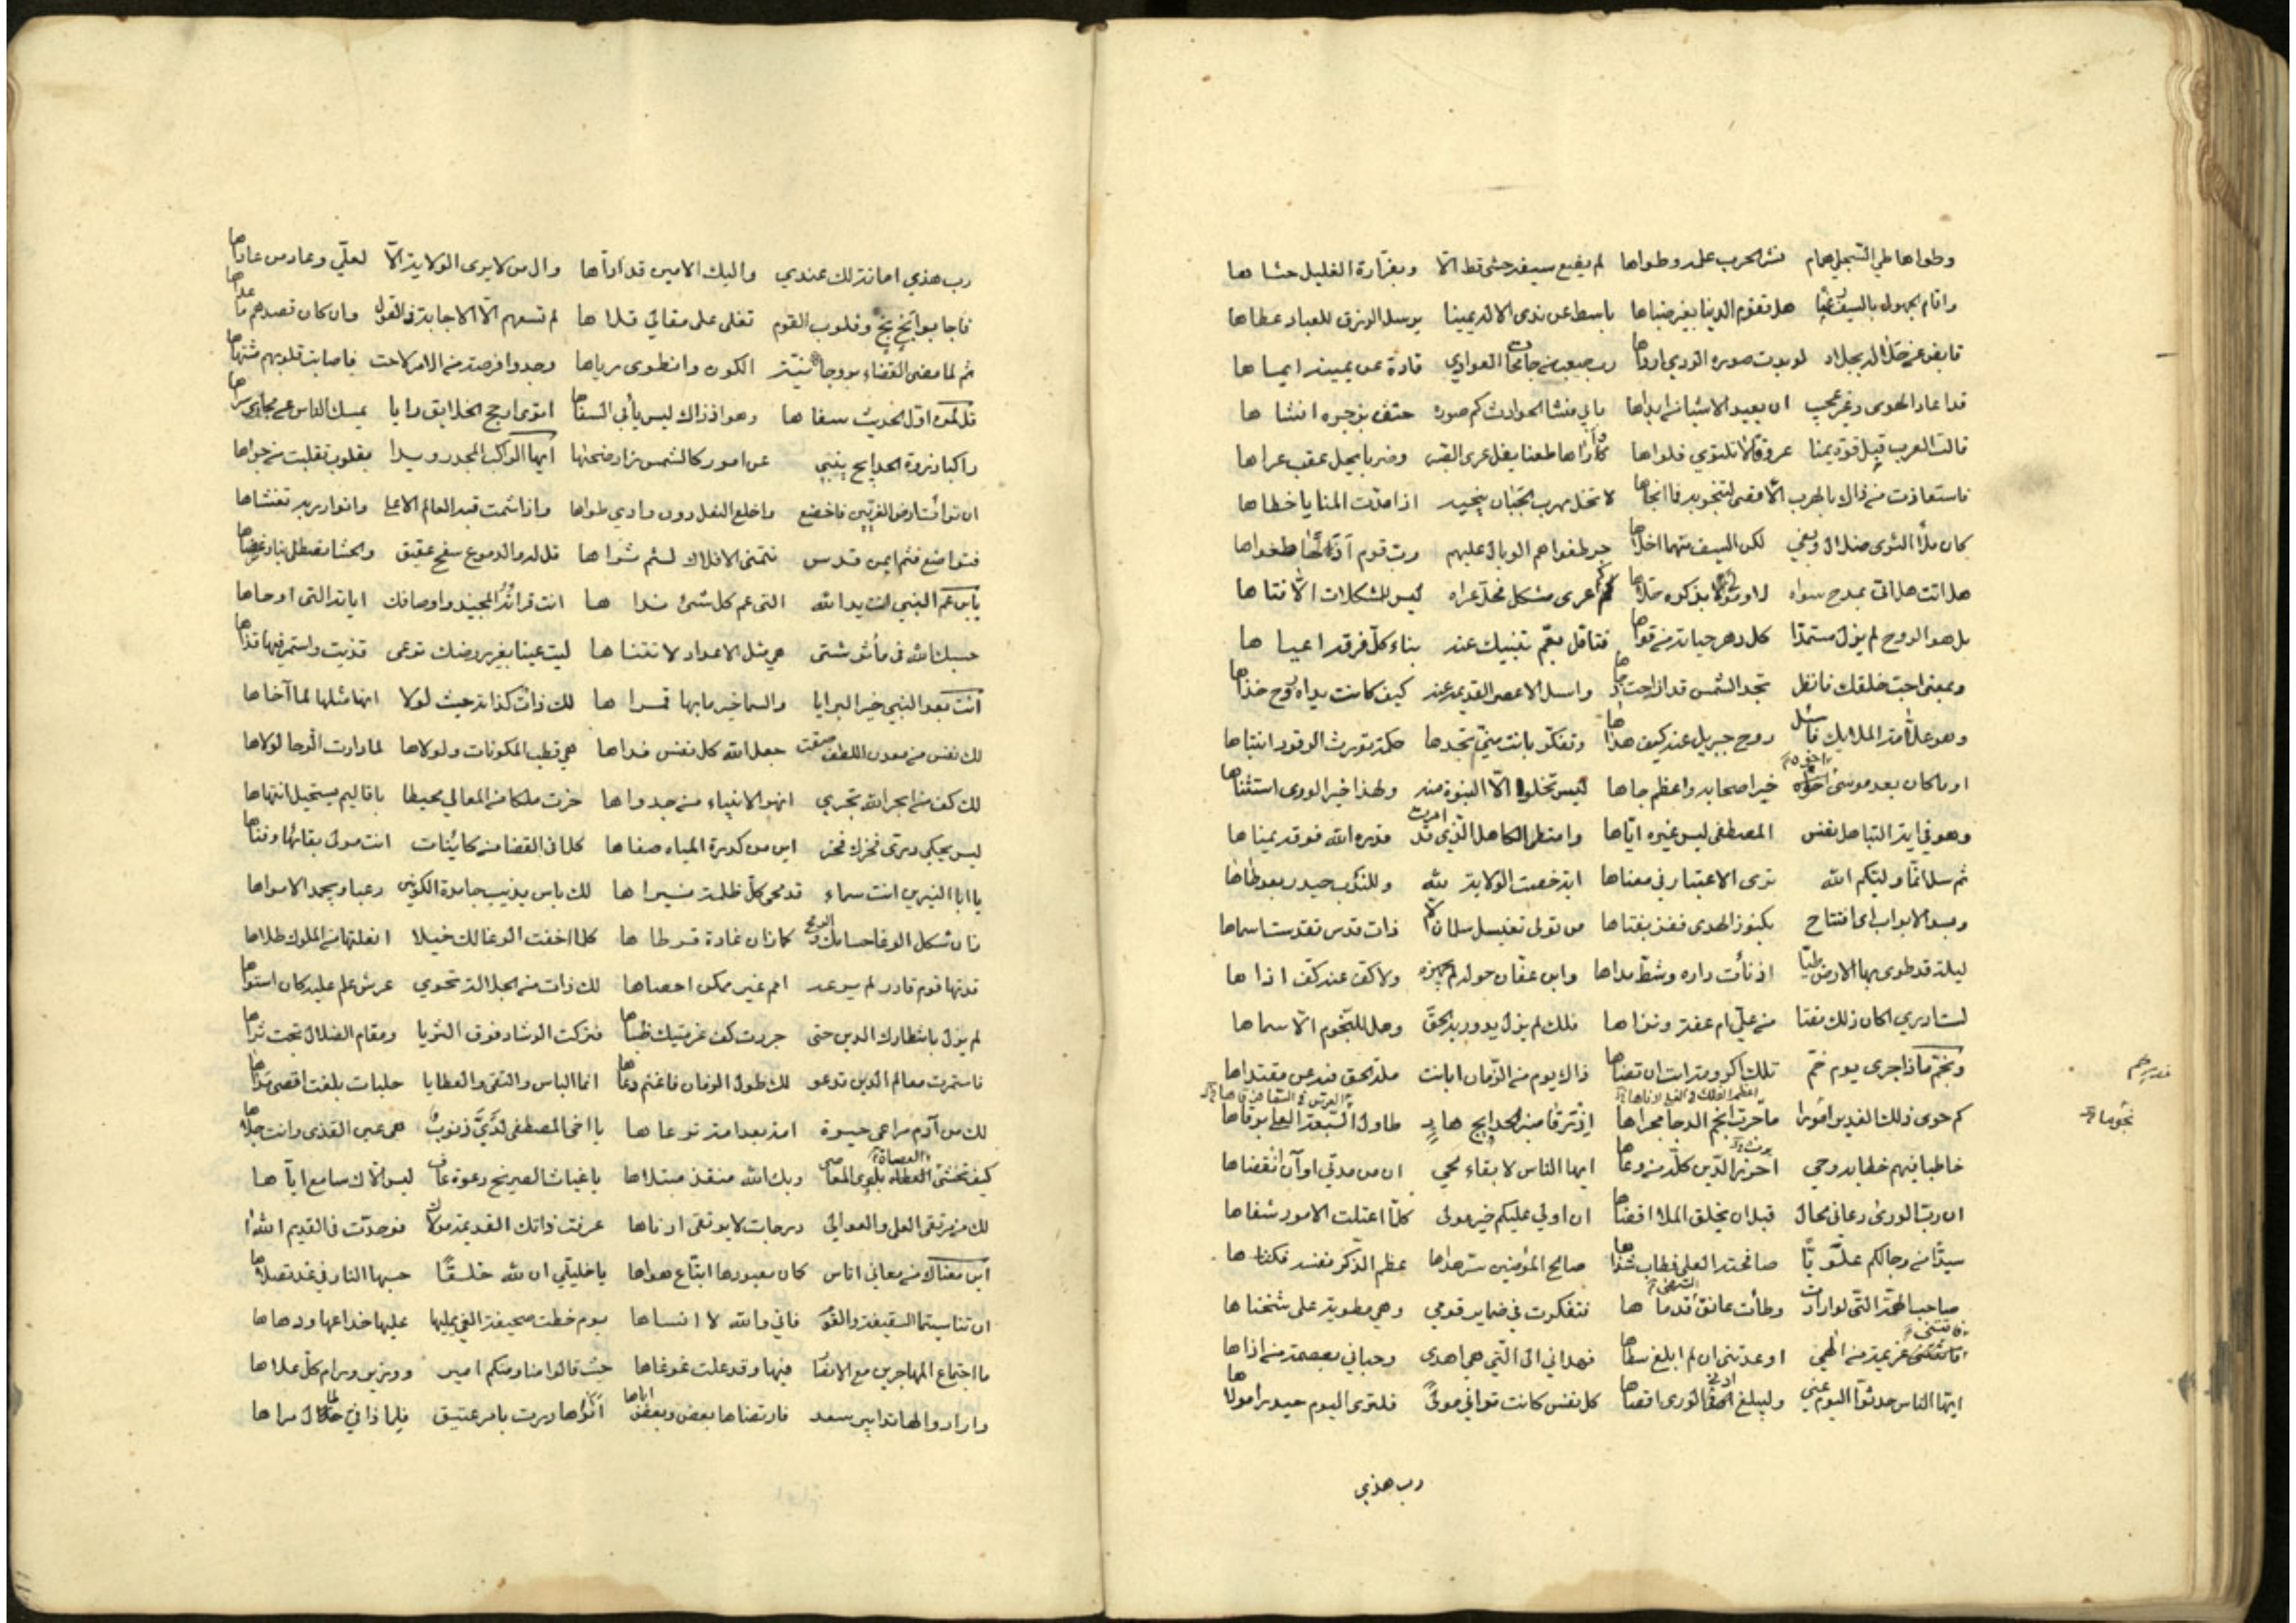 وطواها طي السجل همام نشر الحرب علمه وطواها لم يضع سيفه حشى قط الا وبغرارة الغليل حشاها
واقام بجهول بالسيف هل تقوم الدنيا بغير ضباها باسط عن ندى الاله يمينا يرسل الرزق للعباد عطاها
قابض عن جلال لو بدت صورة الردى ارداها رب صعب من جامحات العوادي قاده عن يمينه ايماها
قد اعاد الهدى وغير عجيب ان يعيد الاشياء من ابداها بابي منشئ الحوادث كم صورة حتف بزجره انشاها
قالت العرب قبل قوة يمنا عروة لا تلتوي فلواها كم اراها طعنا يفل عرى القبس وضربا يحل عقب عراها
فاستعاذت من ذاك بالهرب الاقصى لتنجو به فما انجاها لا تخل مهرب الجبان ينجيه اذا مدت المنايا خطاها
كان ملأ الثرى ضلال وبغي لكن السيف منهما اخلاها جر طغواهم الوبال عليهم رب قوم اذلها طغواها
هل اتت هل اتى بمدح سواه لا ومولى بذكره حلاها كم عرى مشكل فحل عراه ليس للمشكلات الا فتاها
بل هو الروح لم يزل مستمدا كل دهر حياته من قواها فتأمل بعم تنبيك عنه بناء كل فرقة اعياها
وبمعنى احب خلقك فانظر تجد الشمس قد ازاحت دجاها واسأل الاعصر القديمة عنه كيف كانت يداه روح غذاها
وهو علامة الملائك فاسأل روح جبريل عنه كيف هداها وتفكر بانت مني تجدها حكمة تورث الرقود انتباها
او ما كان بعد موسى اخوه خير اصحابه واعظم جاها ليس تخلو الا النبوة منه ولهذا خير الورى استثناها
وهو في آية التباهل نفس المصطفى ليس غيره اياها وامتطى الكاهل الذي قد امرت قدرة الله فوقه يمناها
ثم سل انما وليكم الله ترى الاعتبار في معناها آية خصت الولاية لله وللندب حيدر بعد طاها
وبسد الابواب اي افتتاح بكنوز الهدى ففز بغناها من تولى تغسيل سلمان الا ذات قدس تقدست اسماها
ليلة قد طوى بها الارض طيا اذ نأت داره وشط مداها وابن عفان حوله لم يجهزه ولا كف عنه كف اذاها
لست ادري اكان ذلك مقتا من علي ام عفة ونزاها فلك لم يزل يدور به الحق وهل للنجوم الا سماها
وبخم ماذا جرى يوم خم تلك اكرومة ابت ان تضاهى ذاك يوم من الزمان ابانت ملة الحق فيه عن مقتداها
كم حوى ذلك الغدير نجوما ما جرت انجم الدجا مجراها اذ ترقى منبر الحدائج هاد طاول السبعة العلى برقاها
خاطبا فيهم خطابة وحي احرز الدين كله من وعاها ايها الناس لا بقاء لحي آن من مدتي اوان انقضاها
ان رب الورى دعاني لحال قبل ان يخلق الملا اقضاها ان اولي عليكم خير مولى كلما اعتلت الامور شفاها
سيدا من رجالكم علويا صافحته العلى فطاب شذاها صالح المؤمنين سر هداها عظم الذكر نفسه فكناها
صاحب الهمة التي لو ارادت وطأت عاتق السهى قدماها فتفكرت في ضمائر قومي وهي مطوية على شحناها
فاتتني عزيمة من الهي اوعدتني ان لم ابلغ سطاها فهداني الى التي هي اهدى وحباني بعصمة من اذاها
ايها الناس حدثوا اليوم عني وليبلغ ادنى الورى اقصاها كل نفس كانت تراني مولى فلترى اليوم حيدرا مولاها
رب هذي
غدير خم
نجوما
رب هذي امانة لك عندي واليك الامين قد اداها وال من لا يرى الولاية الا لعلي وعاد من عاداها
فاجابوا بخ بخ وقلوب القوم تغلى على مقالي قلاها لم تسعهم الا الاجابة في القول وان كان قصدهم ما عداها
ثم لما مضى القضاء بروحانية الكون وانطوى رياها وجدوا فرصة من الامر لاحت فاصابت قلوبهم مشتهاها
قل لمن اول الحديث سفاها وهو اذ ذاك ليس يأبى السفاها اترى ارجح الخلايق رايا يمسك الناس عن مجاري سراها
راكبا ذروة الحدايج ينبي عن امور كالشمس راد ضحاها ايها الراكب المجد رويدا بقلوب تقلبت من جواها
ان تراءت ارض الغريين فاخضع واخلع النعل دون وادي طواها واذا شمت قبة العالم الاعلى وانوار ربه تغشاها
فتواضع فثم ايمن قدس تتمنى الافلاك لثم ثراها قل له والدموع سفح عقيق والحشا تصطلى بنار غضاها
يابن عم النبي انت يد الله التي عم كل شئ نداها انت قرآنه المجيد واوصافك آياته التي اوحاها
حسبك الله في مآثر شتى هي مثل الاعداد لا تتناهى ليت عينا بغير روضك ترعى قذيت واستمر فيها قذاها
انت بعد النبي خير البرايا والسما خير ما بها قمراها لك ذات كذاته حيث لولا انها مثلها لما آخاها
لك نفس من معدن اللطف صيغت جعل الله كل نفس فداها هي قطب المكونات ولولاها لما دارت الرحا لولاها
لك كف من ابحر الله تجري انهر الانبياء من جدواها حزت ملكا من المعالي محيطا باقاليم يستحيل انتهاها
ليس يحكي دري فخرك فخر اين من كدرة المياه صفاها كلما في القضا من كاينات انت مولى بقائها وفناها
يا ابا النيرين انت سماء قد محى كل ظلمة نيراها لك باس يذيب جامدة الكونين رعبا ويجمد الامواها
زان شكل الوغى حسامك والرمح كما زان غادة قرطاها كلما اخفت الوغا لك خيلا انعلتها من الملوك طلاها
قدتها قود قادر لم يرعه امم غير ممكن احصاها لك ذات من الجلالة تحوي عرش علم عليه كان استواها
لم يزل بانتظارك الدين حتى جردت كف عزمتيك ظباها فتركت الرشاد فوق الثريا ومقام الضلال تحت ثراها
فاستمرت معالم الدين تدعو لك طول الزمان فاغنم دعاها انما الباس والتقى والعطايا حلبات بلغت اقصى مداها
لك من آدم مراعى حبوة امة بعد امة ترعاها يا اخى المصطفى لدي ذنوب هي عين القذى وانت جلاها
كيف تخشى العصاة بلوى المعاصي وبك الله منقذ مبتلاها يا غياث الصريخ دعوة عاف ليس الاك سامع اياها
لك من مرتقى العلى والمعالي درجات لا يرتقى ادناها عرفت ذاتك القديمة مولاك فوحدت في القديم الله
اين معناك من معاني اناس كان معبودها اتباع هواها يا خليلي ان لله خلقا حسبها النار في غد تصلاها
ان تناسيتما السقيفة والقوم فاني والله لا انساها يوم خطت صحيفة الغي يمليها عليها خداعها ودهاها
ما اجتماع المهاجرين مع الانصار فيها وقد علت غوغاها حيث قالوا منا ومنكم امير ووزير ورام كل علاها
وارادوا لها ابن سعد فارتضاها بعض وبعض اباها اتراها درت بامر عتيق فلماذا في الامر طال مراها